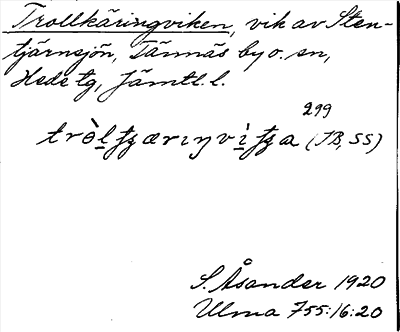 Trollkäringviken, vik av Sten-
tjärnsjön, Tännäs by o. sn,
Hede tg, Jämtl. l.
299
(JB, SS)
S. Åsander 1920
Ulma 755:16:20